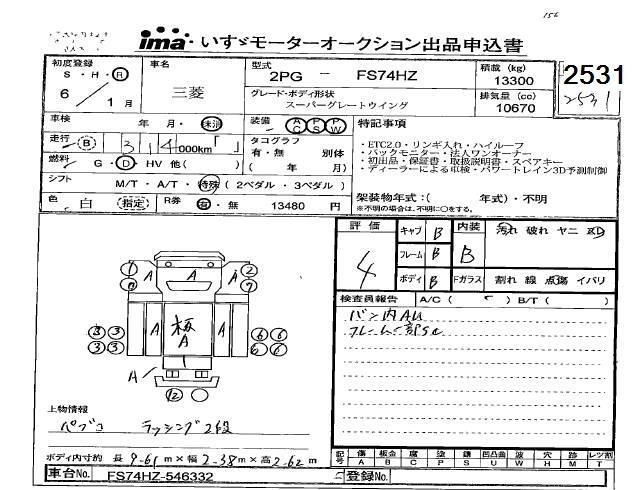 156
ima いすゞモーターオークション出品申込書
初度登録 S・H・R 6／1月
車名 三菱
型式 2PG － FS74HZ
グレード・ボディ形状 スーパーグレートウイング
積載 (kg) 13300
排気量 (cc) 10670
2531
2531
車検 年 月・未消
装備 AC PS PW
走行 B 314000km
タコグラフ 有・無 別体 ( 年 月)
燃料 G・D・HV 他( )
シフト M/T・A/T・特殊 (2ペダル・3ペダル)
色 白 (指定) R券 有・無 13480 円
特記事項
・ETC2.0・リンギ入れ・ハイルーフ
・バックモニター・法人ワンオーナー
・初出品・保証書・取扱説明書・スペアキー
・ディーラーによる車検・パワートレイン3D予測制御
架装物年式:( 年式)・不明
※不明の場合は、不明に○をする。
評価 4
キャブ B
フレーム B
ボディ B
内装 B 汚れ 破れ ヤニ
Fガラス 割れ 線 点傷 イバリ
検査員報告 A/C ( ) B/T ( )
バン内AU
フレーム一部SC
A A A
A 板A A
A
1 2
3 3 3 3
6 6 6 6
12
上物情報
パブコ ラッシング2段
ボディ内寸約 長 9-61 m×幅 2-38 m×高 2-62 m
記号 傷 A 板金 B 腐 C 塗 P 錆 S 凹凸曲 U 波 W 穴 H 跡 M レツ割 T
車台No. FS74HZ-546332
登録No.